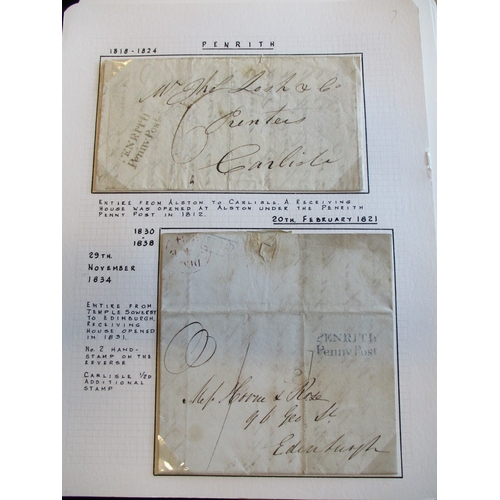 PENRITH
1818 - 1824
PENRITH
Penny Post
Carlisle
ENTIRE FROM ALSTON TO CARLISLE. A RECEIVING
HOUSE WAS OPENED AT ALSTON UNDER THE PENRITH
PENNY POST IN 1812.
20TH. FEBRUARY 1821
1830
-
1838
29TH
NOVEMBER
1834
ENTIRE FROM
TEMPLE SOWERBY
TO EDINBURGH,
RECEIVING
HOUSE OPENED
IN 1831.
NO. 2 HAND-
STAMP ON THE
REVERSE
CARLISLE 1/2D
ADDITIONAL
STAMP
PENRITH
Penny Post
& Rose
96 Geo St.
Edinburgh